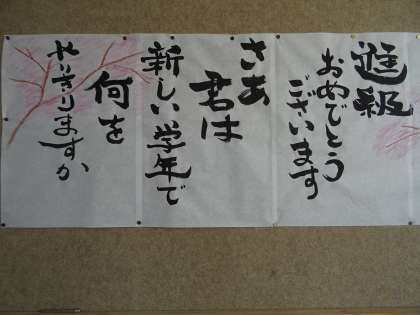 進級
おめでとう
ございます
さあ
君は
新しい学年で
何を
やりきりますか